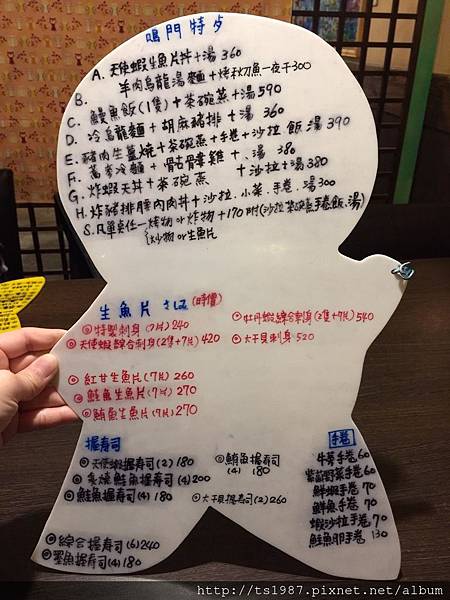 鳴門特歺
A. 天使蝦生魚片丼+湯 360
B. 羊肉烏龍湯麵+烤秋刀魚一夜干300
C. 鰻魚飯(1隻)+茶碗蒸+湯590
D. 冷烏龍麵+胡麻豬排+湯 360
E. 豬肉生薑燒+茶碗蒸+手卷+沙拉 飯.湯 390
F. 蕎麥冷麵+骰骨輩雞+.湯 380
G. 炸蝦天丼+茶碗蒸 +沙拉+湯380
H. 炸豬排牌肉肉丼+沙拉.小菜.手卷.湯300
S. 凡單点任一烤物or炸物+170附(沙拉.茶碗蒸.手卷.飯.湯)
炒物or生魚片
生魚片 さしみ (時價)
◎特製刺身(7片)240
◎牡丹蝦綜合刺身(2隻+7片)540
◎天使蝦綜合刺身(2隻+7片) 420
◎大干貝刺身 520
◎紅甘生魚片(7片)260
◎鮭魚生魚片(7片)270
◎鮪魚生魚片(7片)270
握壽司
◎天使蝦握壽司(2)180
◎鮪魚握壽司
(4) 180
◎炙燒鮭魚握壽司(4)200
◎鮭魚握壽司(4)180
◎大干貝握壽司(2)260
◎綜合握壽司(6)240
◎墨魚握壽司(4)180
手卷
牛蒡手卷60
紫蘇野菜手卷60
鮮蝦手卷 70
鮮魚手卷 70
蝦沙拉手卷70
鮭魚卵手卷 130
http://ts1987.pixnet.net/album